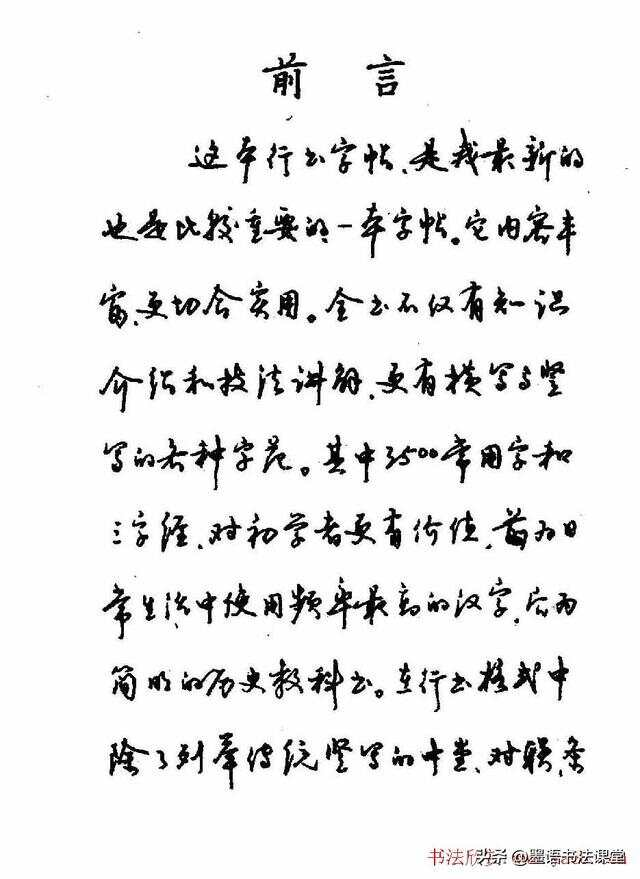 前 言
这本行书字帖,是我最新的
也是比较重要的一本字帖。它内容丰
富,更切合实用。全书不仅有知识
介绍和技法讲解,更有横写与竖
写的各种字范。其中3500常用字和
三字经,对初学者更有价值,前为日
常生活中使用频率最高的汉字,后为
简明的历史教科书。在行书格式中
除了列举传统竖写的中堂、对联、条
书法欣赏
头条 @墨语书法课堂